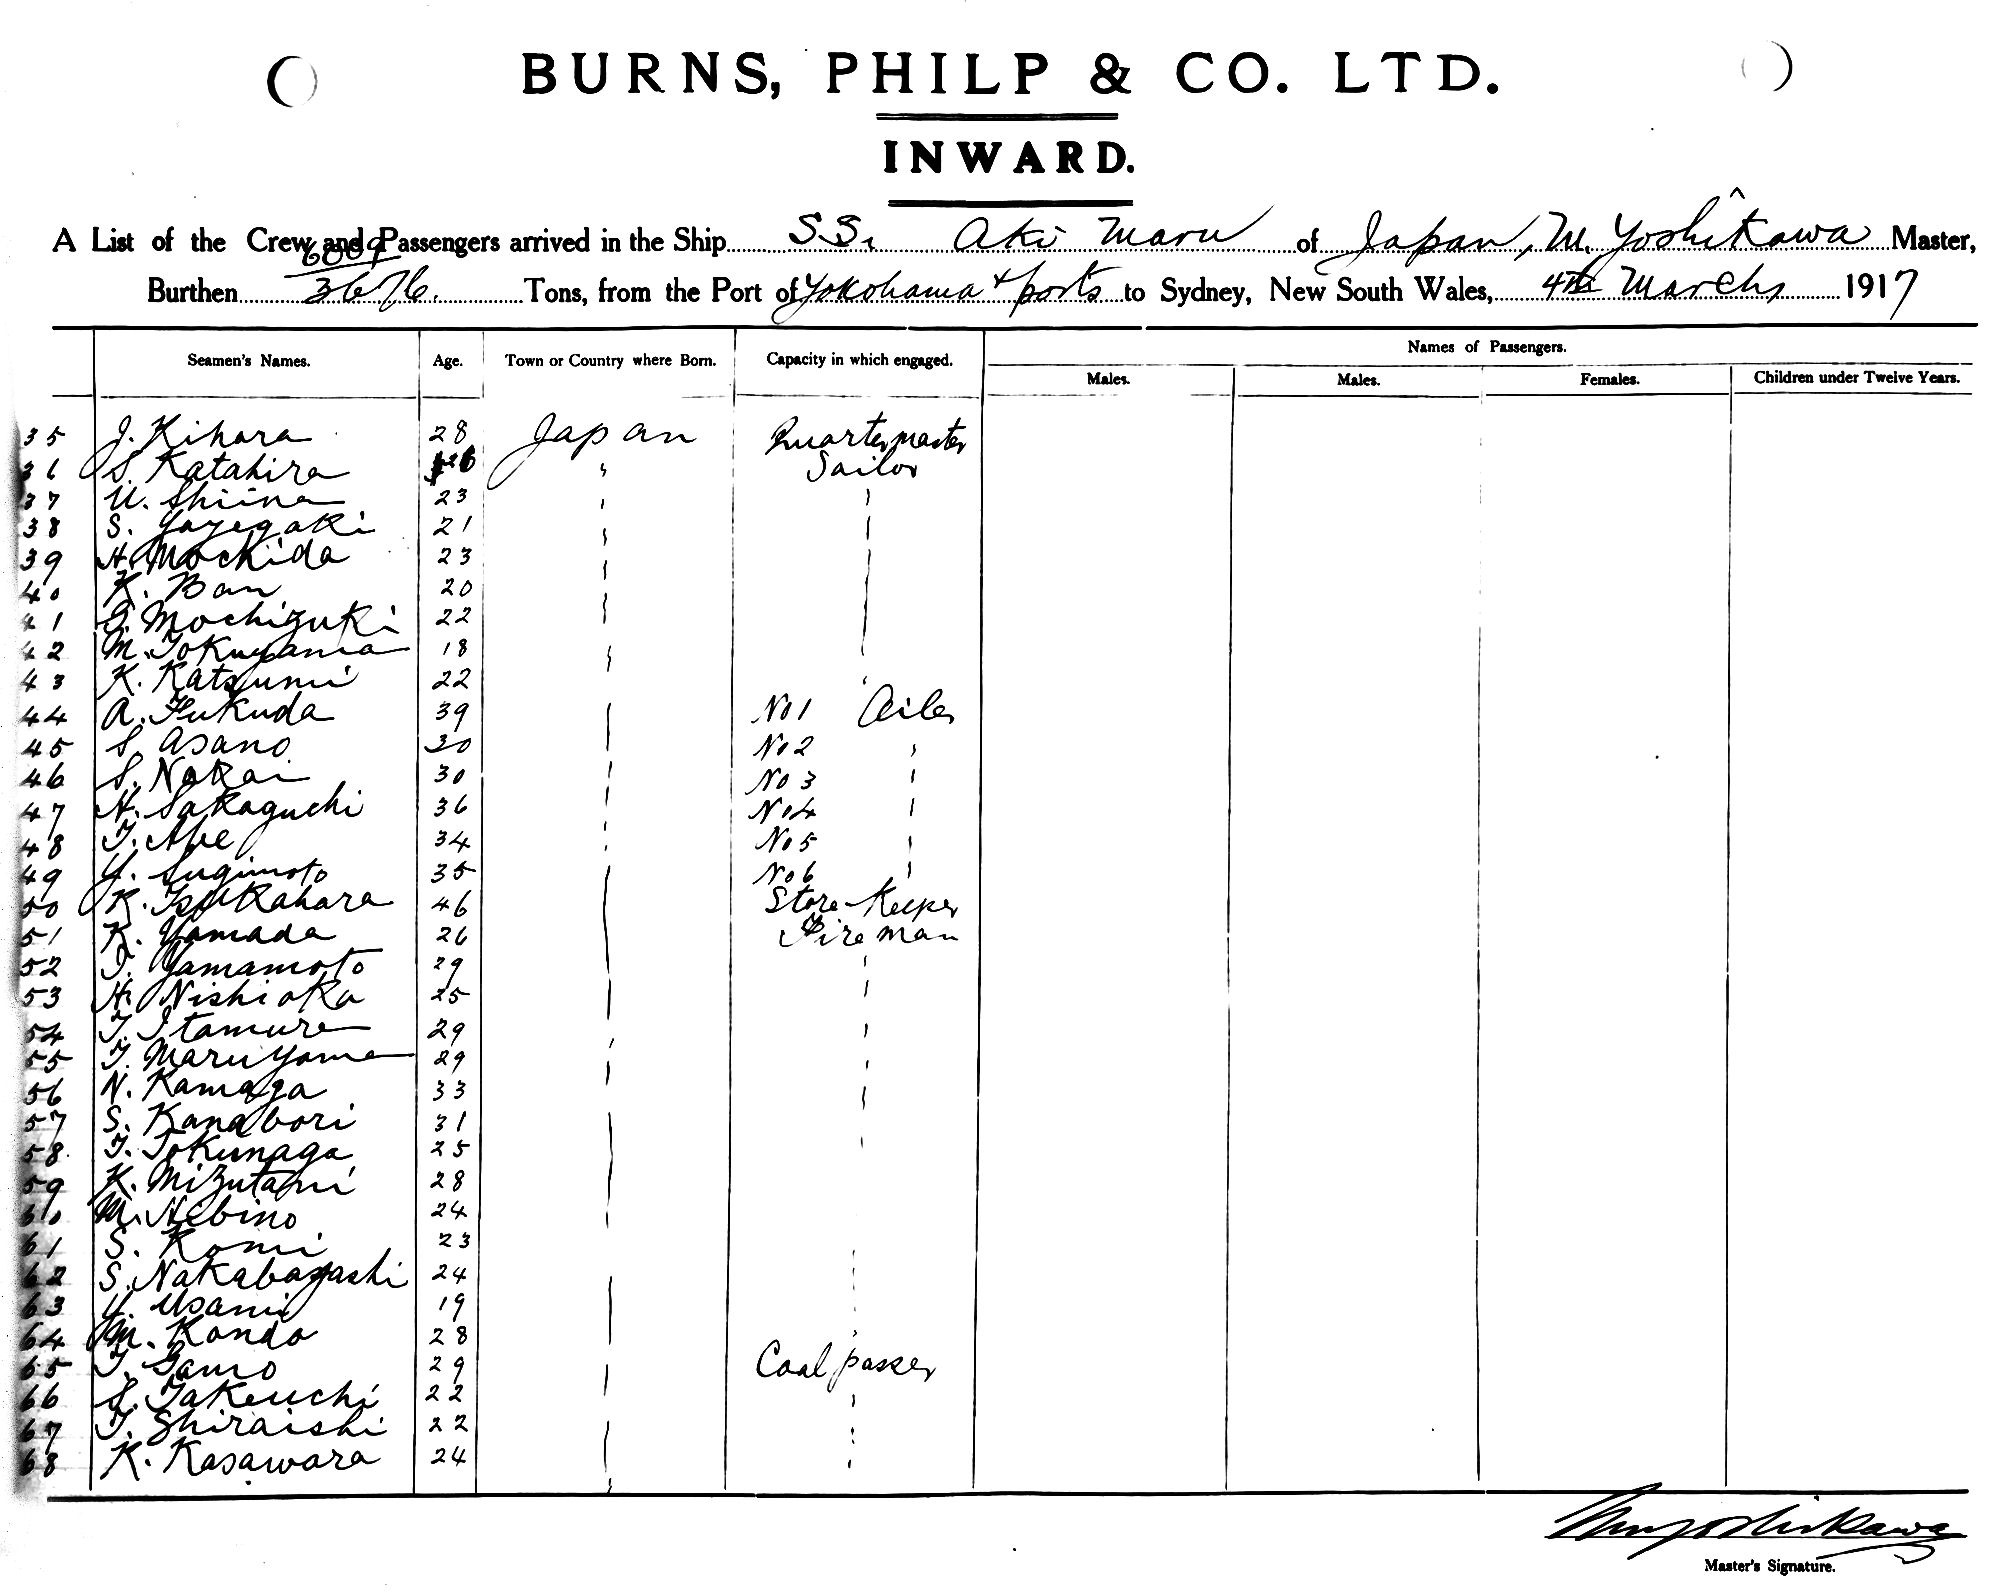 BURNS, PHILP & CO. LTD.
INWARD.
A List of the Crew and Passengers arrived in the Ship S.S. Aki Maru of Japan, M. Yoshikawa Master,
6009
Burthen 3676. Tons, from the Port of Yokohama + ports to Sydney, New South Wales, 4th March, 1917
Names of Passengers.
Seamen's Names. Age. Town or Country where Born. Capacity in which engaged. Males. Males. Females. Children under Twelve Years.
35 J. Kihara 28 Japan Quartermaster
36 S. Katahira 26 " Sailor
37 U. Shiina 23 " "
38 S. Yayegaki 21 " "
39 H. Mochida 23 " "
40 K. Ban 20 " "
41 G. Mochizuki 22 " "
42 M. Tokuyama 18 " "
43 K. Katsumi 22 "
44 A. Fukuda 39 " No 1 Oiler
45 S. Asano 30 " No 2 "
46 S. Nakai 30 " No 3 "
47 H. Sakaguchi 36 " No 4 "
48 T. Abe 34 " No 5 "
49 Y. Sugimoto 35 " No 6 "
50 K. Tsukahara 46 " Store-Keeper
51 K. Yamada 26 " Fireman
52 T. Yamamoto 29 " "
53 H. Nishioka 25 " "
54 T. Itamura 29 " "
55 T. Maruyama 29 " "
56 N. Kamaga 33 " "
57 S. Kanabori 31 " "
58 T. Tokunaga 25 " "
59 K. Mizutani 28 "
60 M. Hebino 24 "
61 S. Komi 23 "
62 S. Nakabayashi 24 " "
63 Y. Usami 19 " "
64 M. Kondo 28 " "
65 T. Gamo 29 " Coal passer
66 S. Takeuchi 22 " "
67 T. Shiraishi 22 " "
68 K. Kasawara 24 " "
M. Yoshikawa
Master's Signature.